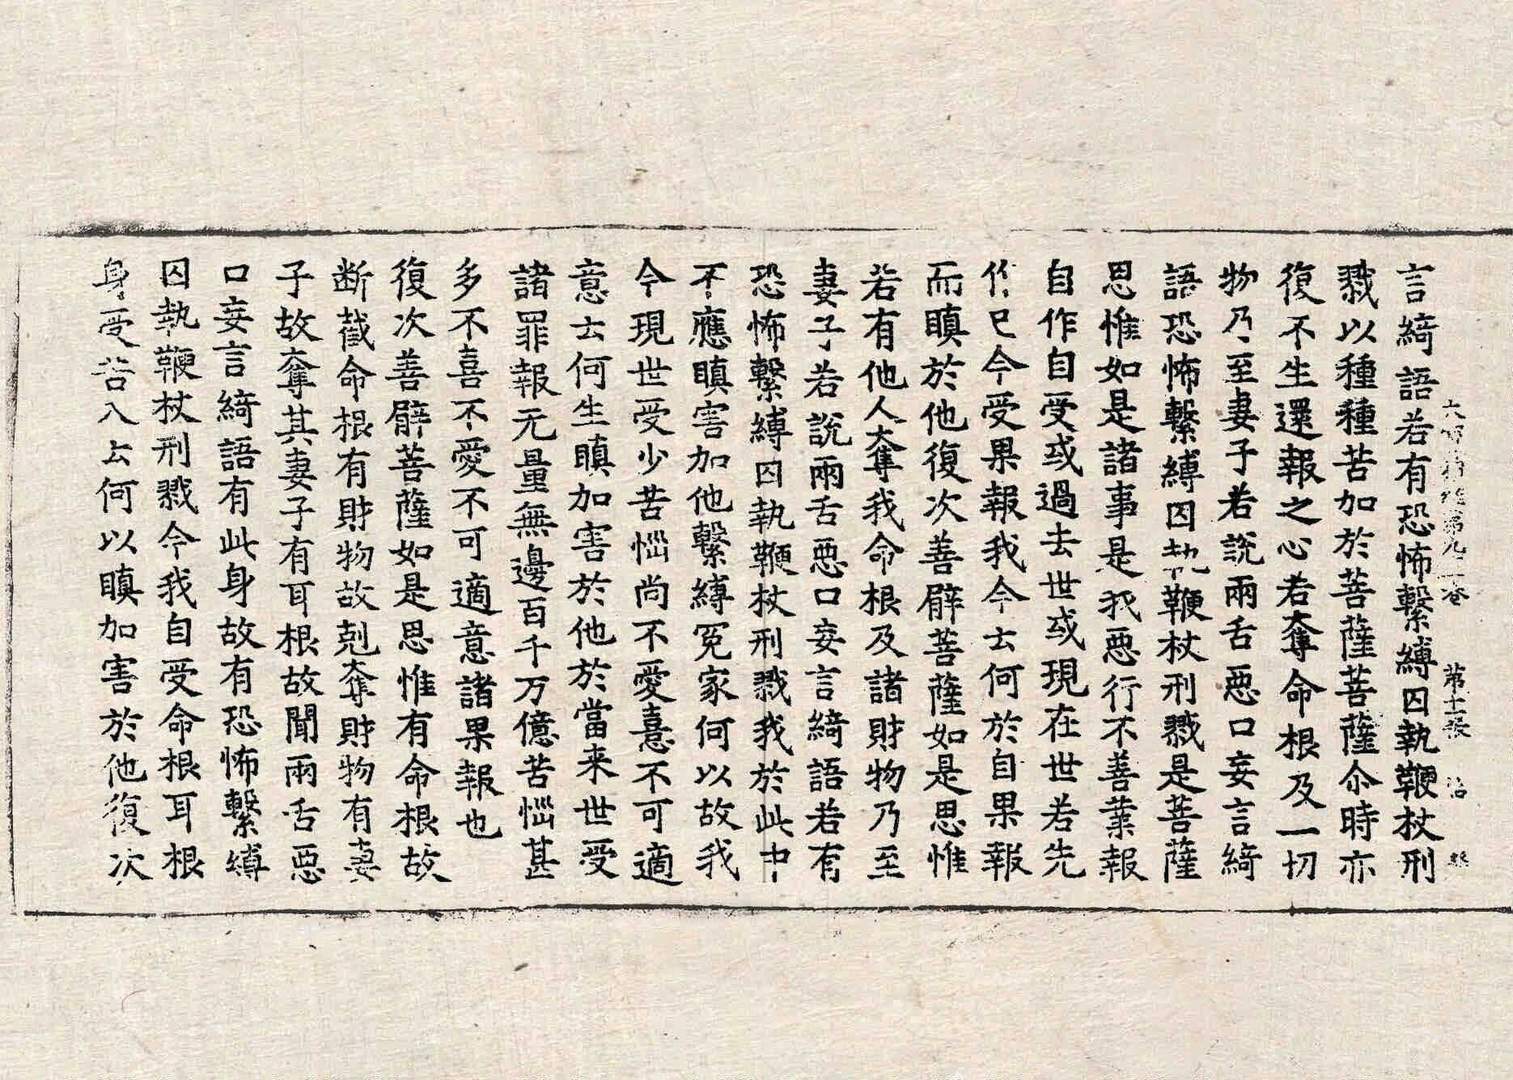 言綺語若有恐怖繫縛囚執鞭杖刑
戮以種種苦加於菩薩菩薩尒時亦
復不生還報之心若奪命根及一切
物乃至妻子若說兩舌惡口妄言綺
語恐怖繫縛囚執鞭杖刑戮是菩薩
思惟如是諸事是我惡行不善業報
自作自受或過去世或現在世若先
作已今受果報我今云何於自果報
而瞋於他復次善臂菩薩如是思惟
若有他人奪我命根及諸財物乃至
妻子若說兩舌惡口妄言綺語若有
恐怖繫縛囚執鞭杖刑戮我於此中
不應瞋害加他繫縛冤家何以故我
今現世受少苦惱尚不愛憙不可適
意云何生瞋加害於他於當来世受
諸罪報无量無邊百千万億苦惱甚
多不喜不愛不可適意諸果報也
復次善臂菩薩如是思惟有命根故
断截命根有財物故剋奪財物有妻
子故奪其妻子有耳根故聞兩舌惡
口妄言綺語有此身故有恐怖繫縛
囚執鞭杖刑戮今我自受命根耳根
身受苦入云何以瞋加害於他復次